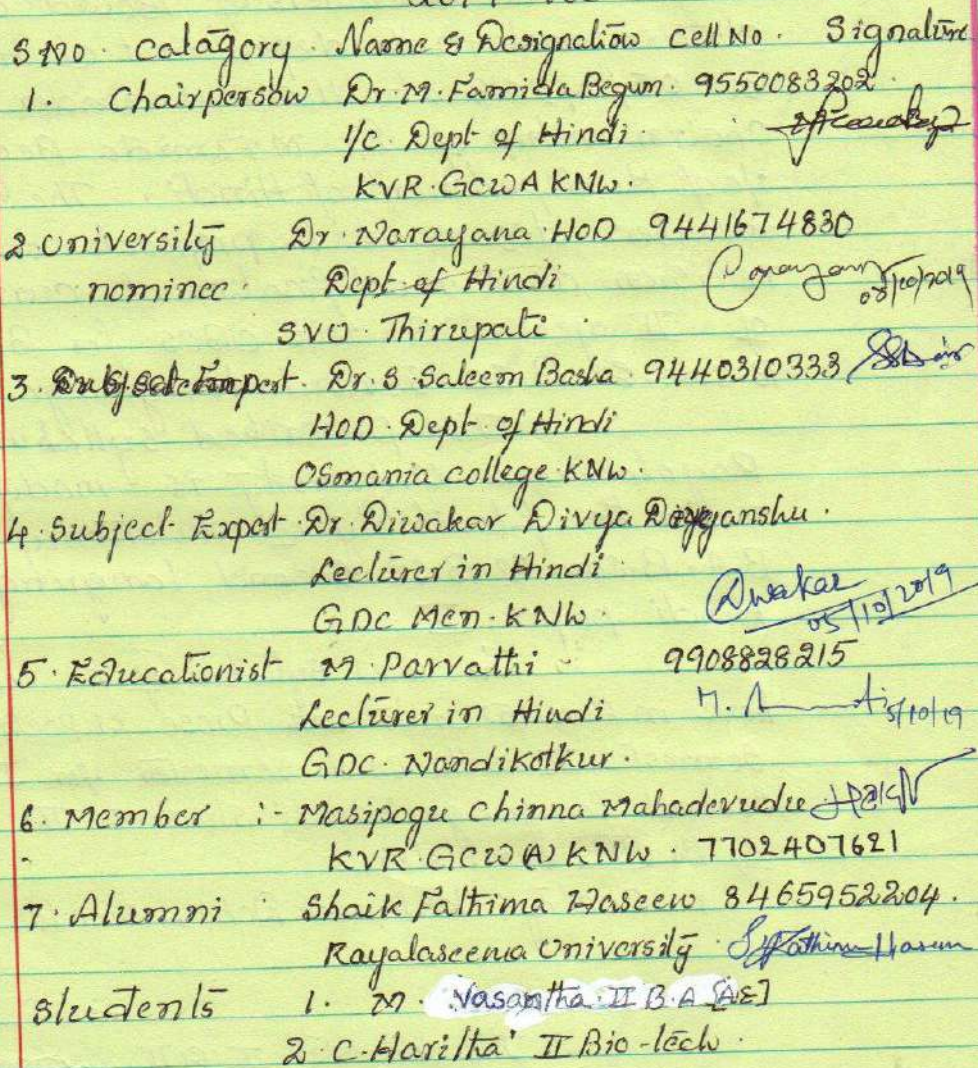 S NO. Catagory. Name & Designation Cell No. Signature
1. Chairperson Dr. M. Famida Begum. 9550083202
I/C. Dept of Hindi
KVR. GCWA KNL.
2 University Dr. Narayana HOD 9441674830
nominee. Dept of Hindi 05/10/2019
SVU. Thirupati
3. Expert. Dr. S Saleem Basha. 9440310333
HOD. Dept. of Hindi
OSmania College KNL.
4. Subject Expert. Dr. Diwakar Divya
Lecturer in Hindi
GDC Men. KNL. Diwakar 05/10/2019
5. Educationist M. Parvathi 9908828215
Lecturer in Hindi M. 5/10/19
GDC. Nandikotkur.
6. Member :- Masipogu Chinna Mahadevudu
KVR. GCW(A) KNL. 7702407621
7. Alumni : Shaik Fathima Haseen 8465952204.
Rayalaseema University.
Students 1. M. Vasantha. II B.A [AE]
2. C. Haritha' II Bio-tech.